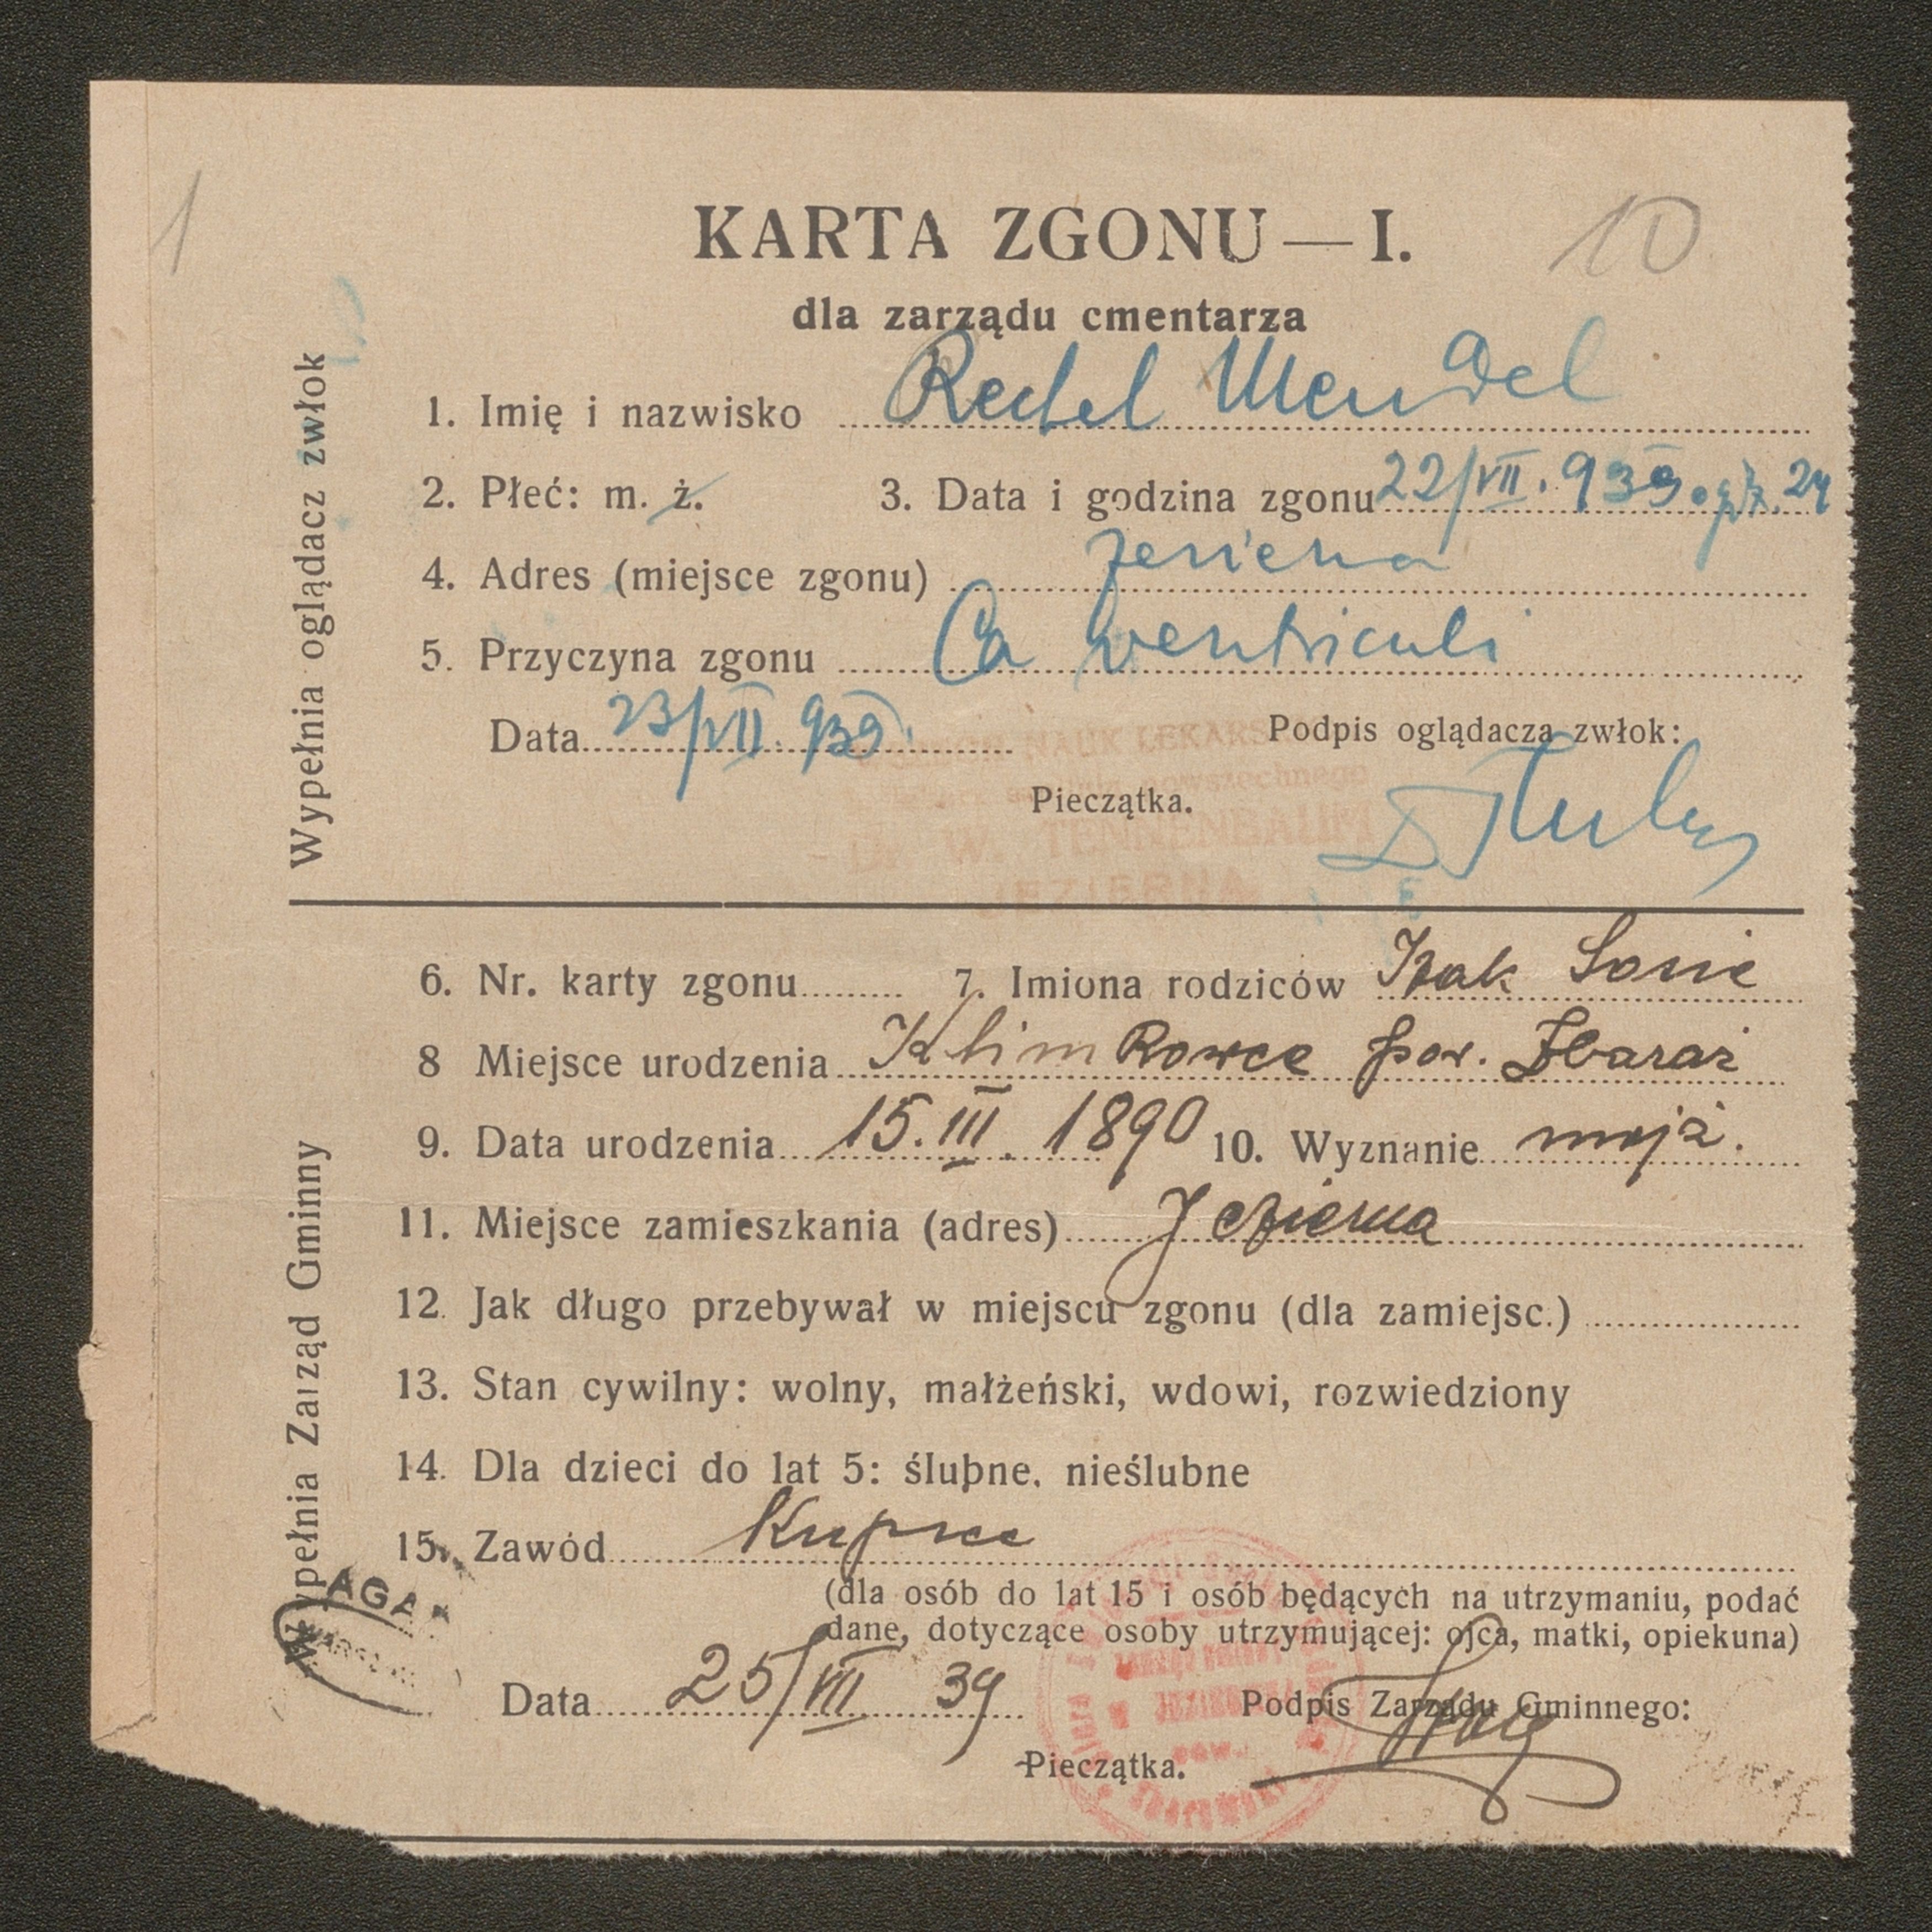 1
10
KARTA ZGONU — I.
dla zarządu cmentarza
Wypełnia oglądacz zwłok
1. Imię i nazwisko Rechel Mendel
2. Płeć: m. ż. 3. Data i godzina zgonu 22/VII. 939. o g. 24
4. Adres (miejsce zgonu) Jezierna
5. Przyczyna zgonu Ca ventriculi
Data 23/VII. 939. Podpis oglądacza zwłok:
NAUK LEKARSK
powszechnego
Pieczątka.
Dr W. TENNENBAUM
JEZIERNA
6. Nr. karty zgonu 7. Imiona rodziców Izak Sosie
8 Miejsce urodzenia Klimkowce pow. Zbaraż
9. Data urodzenia 15. III. 1890 10. Wyznanie mojż.
Wypełnia Zarząd Gminny
11. Miejsce zamieszkania (adres) Jezierna
12. Jak długo przebywał w miejscu zgonu (dla zamiejsc.)
13. Stan cywilny: wolny, małżeński, wdowi, rozwiedziony
14. Dla dzieci do lat 5: ślubne, nieślubne
15. Zawód Kupiec
(dla osób do lat 15 i osób będących na utrzymaniu, podać
dane, dotyczące osoby utrzymującej: ojca, matki, opiekuna)
AGAD
WARSZAWA
Data 25/VII 39 Podpis Zarządu Gminnego:
Pieczątka.